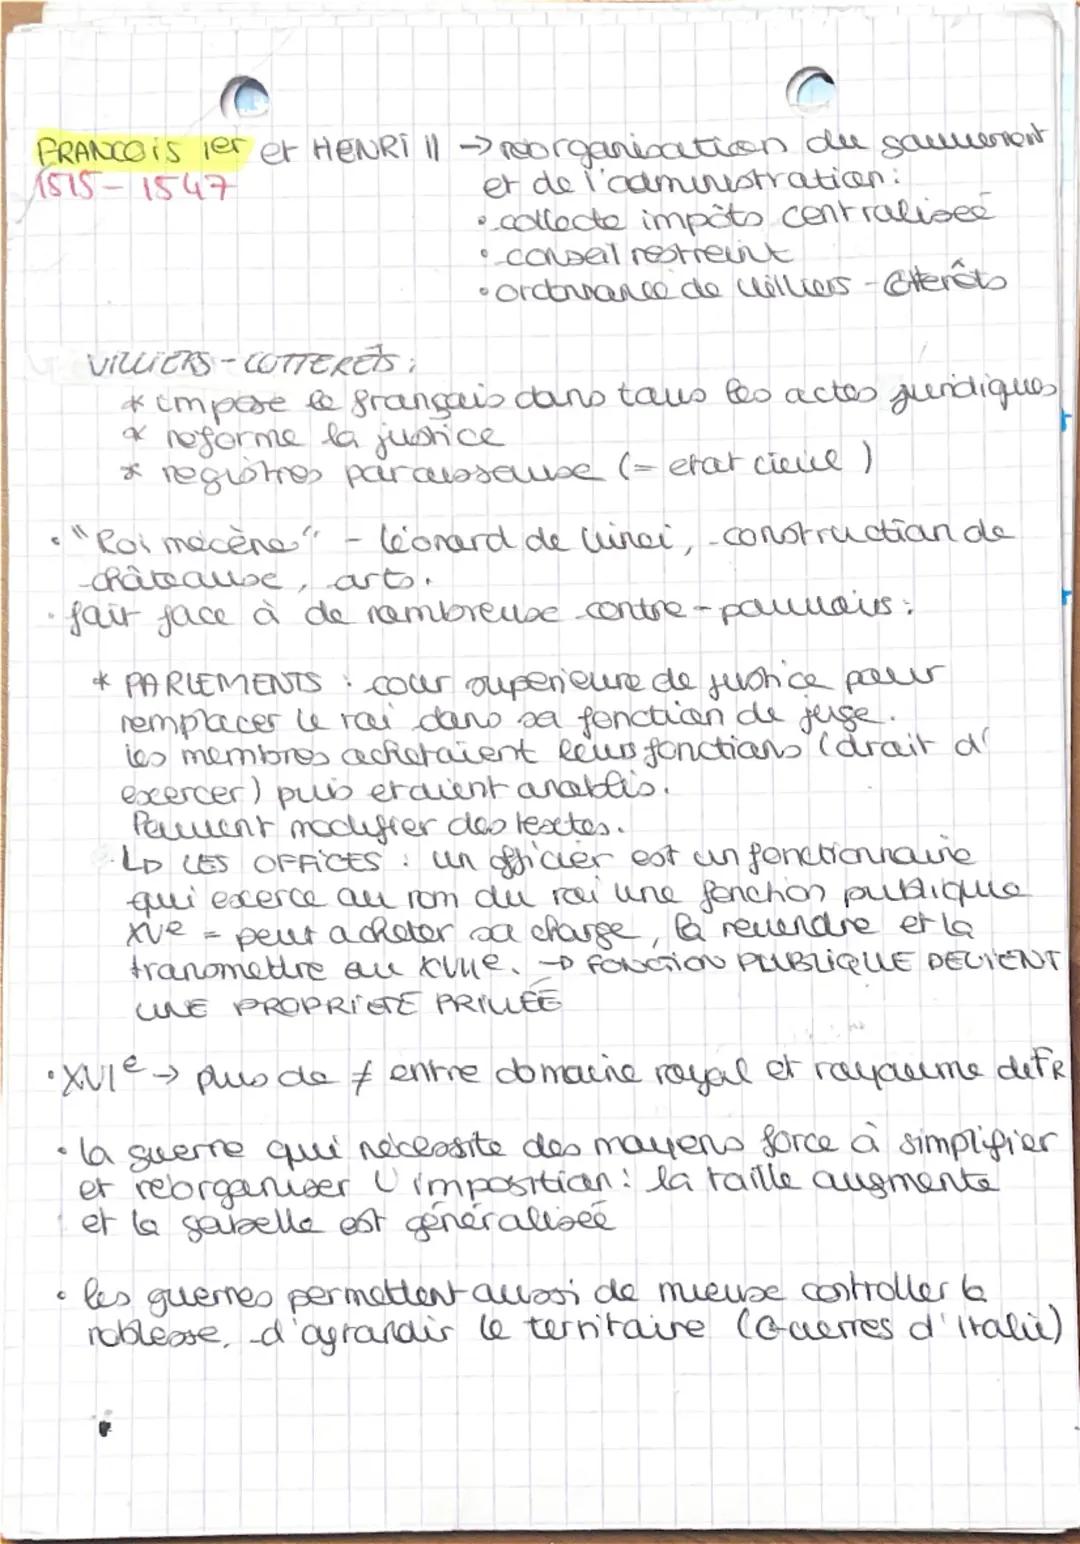 FRANCOIS 1er et HENRI II → réorganisation du gouvernement
1515 - 1547 et de l'administration :
• collecte impôts centralisée
• conseil restreint
• ordonnance de Villiers - Côterêts
VILLIERS - COTTERETS :
* impose le français dans tous les actes juridiques
* reforme la justice
* registres paroissaux (= etat civil )
• "Roi mécène" - léonard de Vinci, construction de
châteaux, arts.
• fait face à de nombreux contre-pouvoirs :
* PARLEMENTS : cour superieure de justice pour
remplacer le roi dans sa fonction de juge.
les membres achetaient leurs fonctions (droit d'
exercer) puis etaient anoblis.
Peuvent modifier des textes.
↳ LES OFFICES : un officier est un fonctionnaire
qui exerce au nom du roi une fonction publique
XVe = peut acheter sa charge, la revendre et la
transmettre au XVIIe. → FONCTION PUBLIQUE DEVIENT
UNE PROPRIETE PRIVÉE
• XVIe → plus de ≠ entre domaine royal et royaume de FR
• la guerre qui nécessite des moyens force à simplifier
et réorganiser l'imposition : la taille augmente
et la gabelle est généralisée
• les guerres permettent aussi de mieux controller la
noblesse, d'agrandir le territoire (Guerres d'Italie)